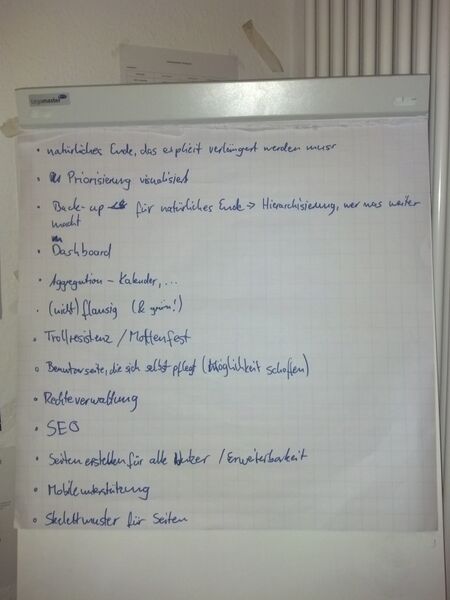 legamaster
• natürliches Ende, das explicit verlängert werden muss
• Priorisierung visualisiert
• Back-up für natürliches Ende → Hierarchisierung, wer was weiter
macht
• Dashboard
• Aggregation - Kalender, ...
• (nicht) flausig (& grün!)
• Trollresistenz / Mottenfest
• Benutzerseite, die sich selbst pflegt (Möglichkeit schaffen)
• Rechteverwaltung
• SEO
• Seiten erstellen für alle Nutzer / Erweiterbarkeit
• Mobilunterstützung
• Skelettmuster für Seiten